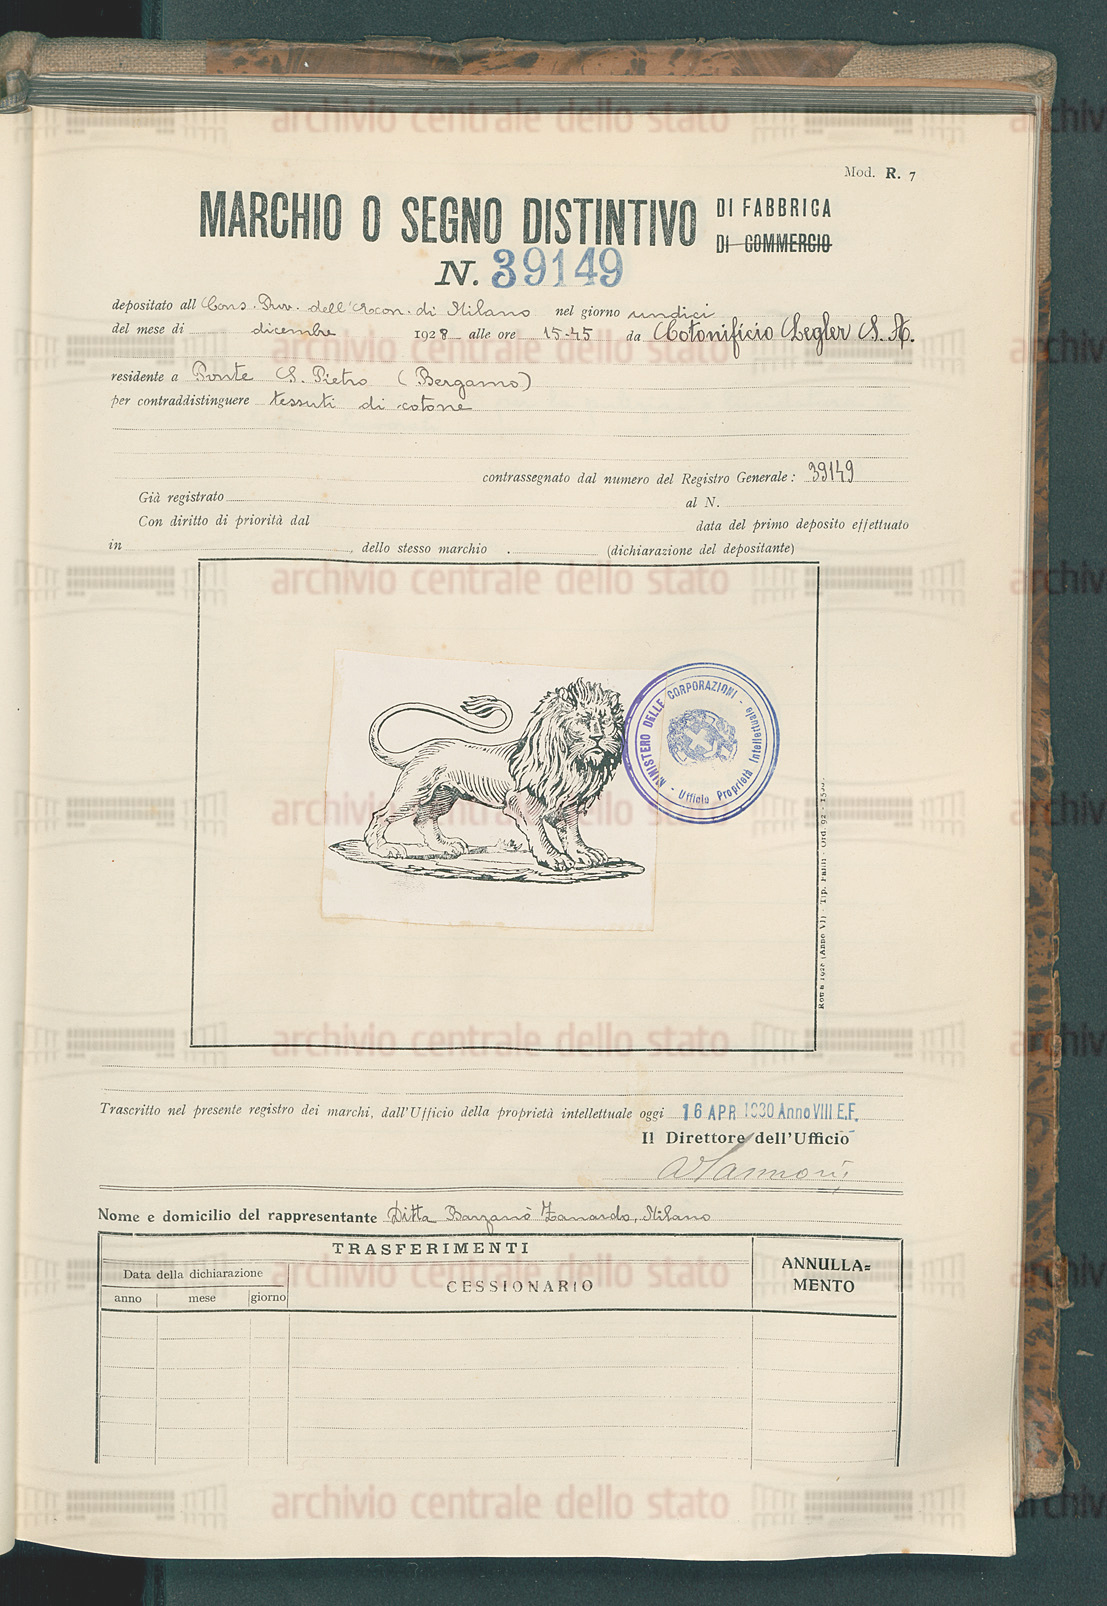 Mod. R. 7
MARCHIO O SEGNO DISTINTIVO DI FABBRICA
DI COMMERCIO
N. 39149
depositato all Cons. Prov. dell'Econ. di Milano nel giorno undici
del mese di dicembre 1928 alle ore 15-45 da Cotonificio Legler S. A.
residente a Ponte S. Pietro (Bergamo)
per contraddistinguere tessuti di cotone
contrassegnato dal numero del Registro Generale: 39149
Già registrato al N.
Con diritto di priorità dal data del primo deposito effettuato
in , dello stesso marchio . (dichiarazione del depositante)
MINISTERO DELLE CORPORAZIONI - Ufficio Proprietà Intellettuale -
Roma 1928 (Anno VI) - Tip. Ord. 92
Trascritto nel presente registro dei marchi, dall'Ufficio della proprietà intellettuale oggi 16 APR 1930 Anno VIII E.F.
Il Direttore dell'Ufficio
Nome e domicilio del rappresentante Ditta Barzanò Zanardo, Milano
TRASFERIMENTI
ANNULLA=
MENTO
Data della dichiarazione
CESSIONARIO
anno mese giorno
archivio centrale dello stato
archivio centrale dello stato
archivio centrale dello stato
archivio centrale dello stato
archivio centrale dello stato
archivio centrale dello stato
archivio centrale dello stato